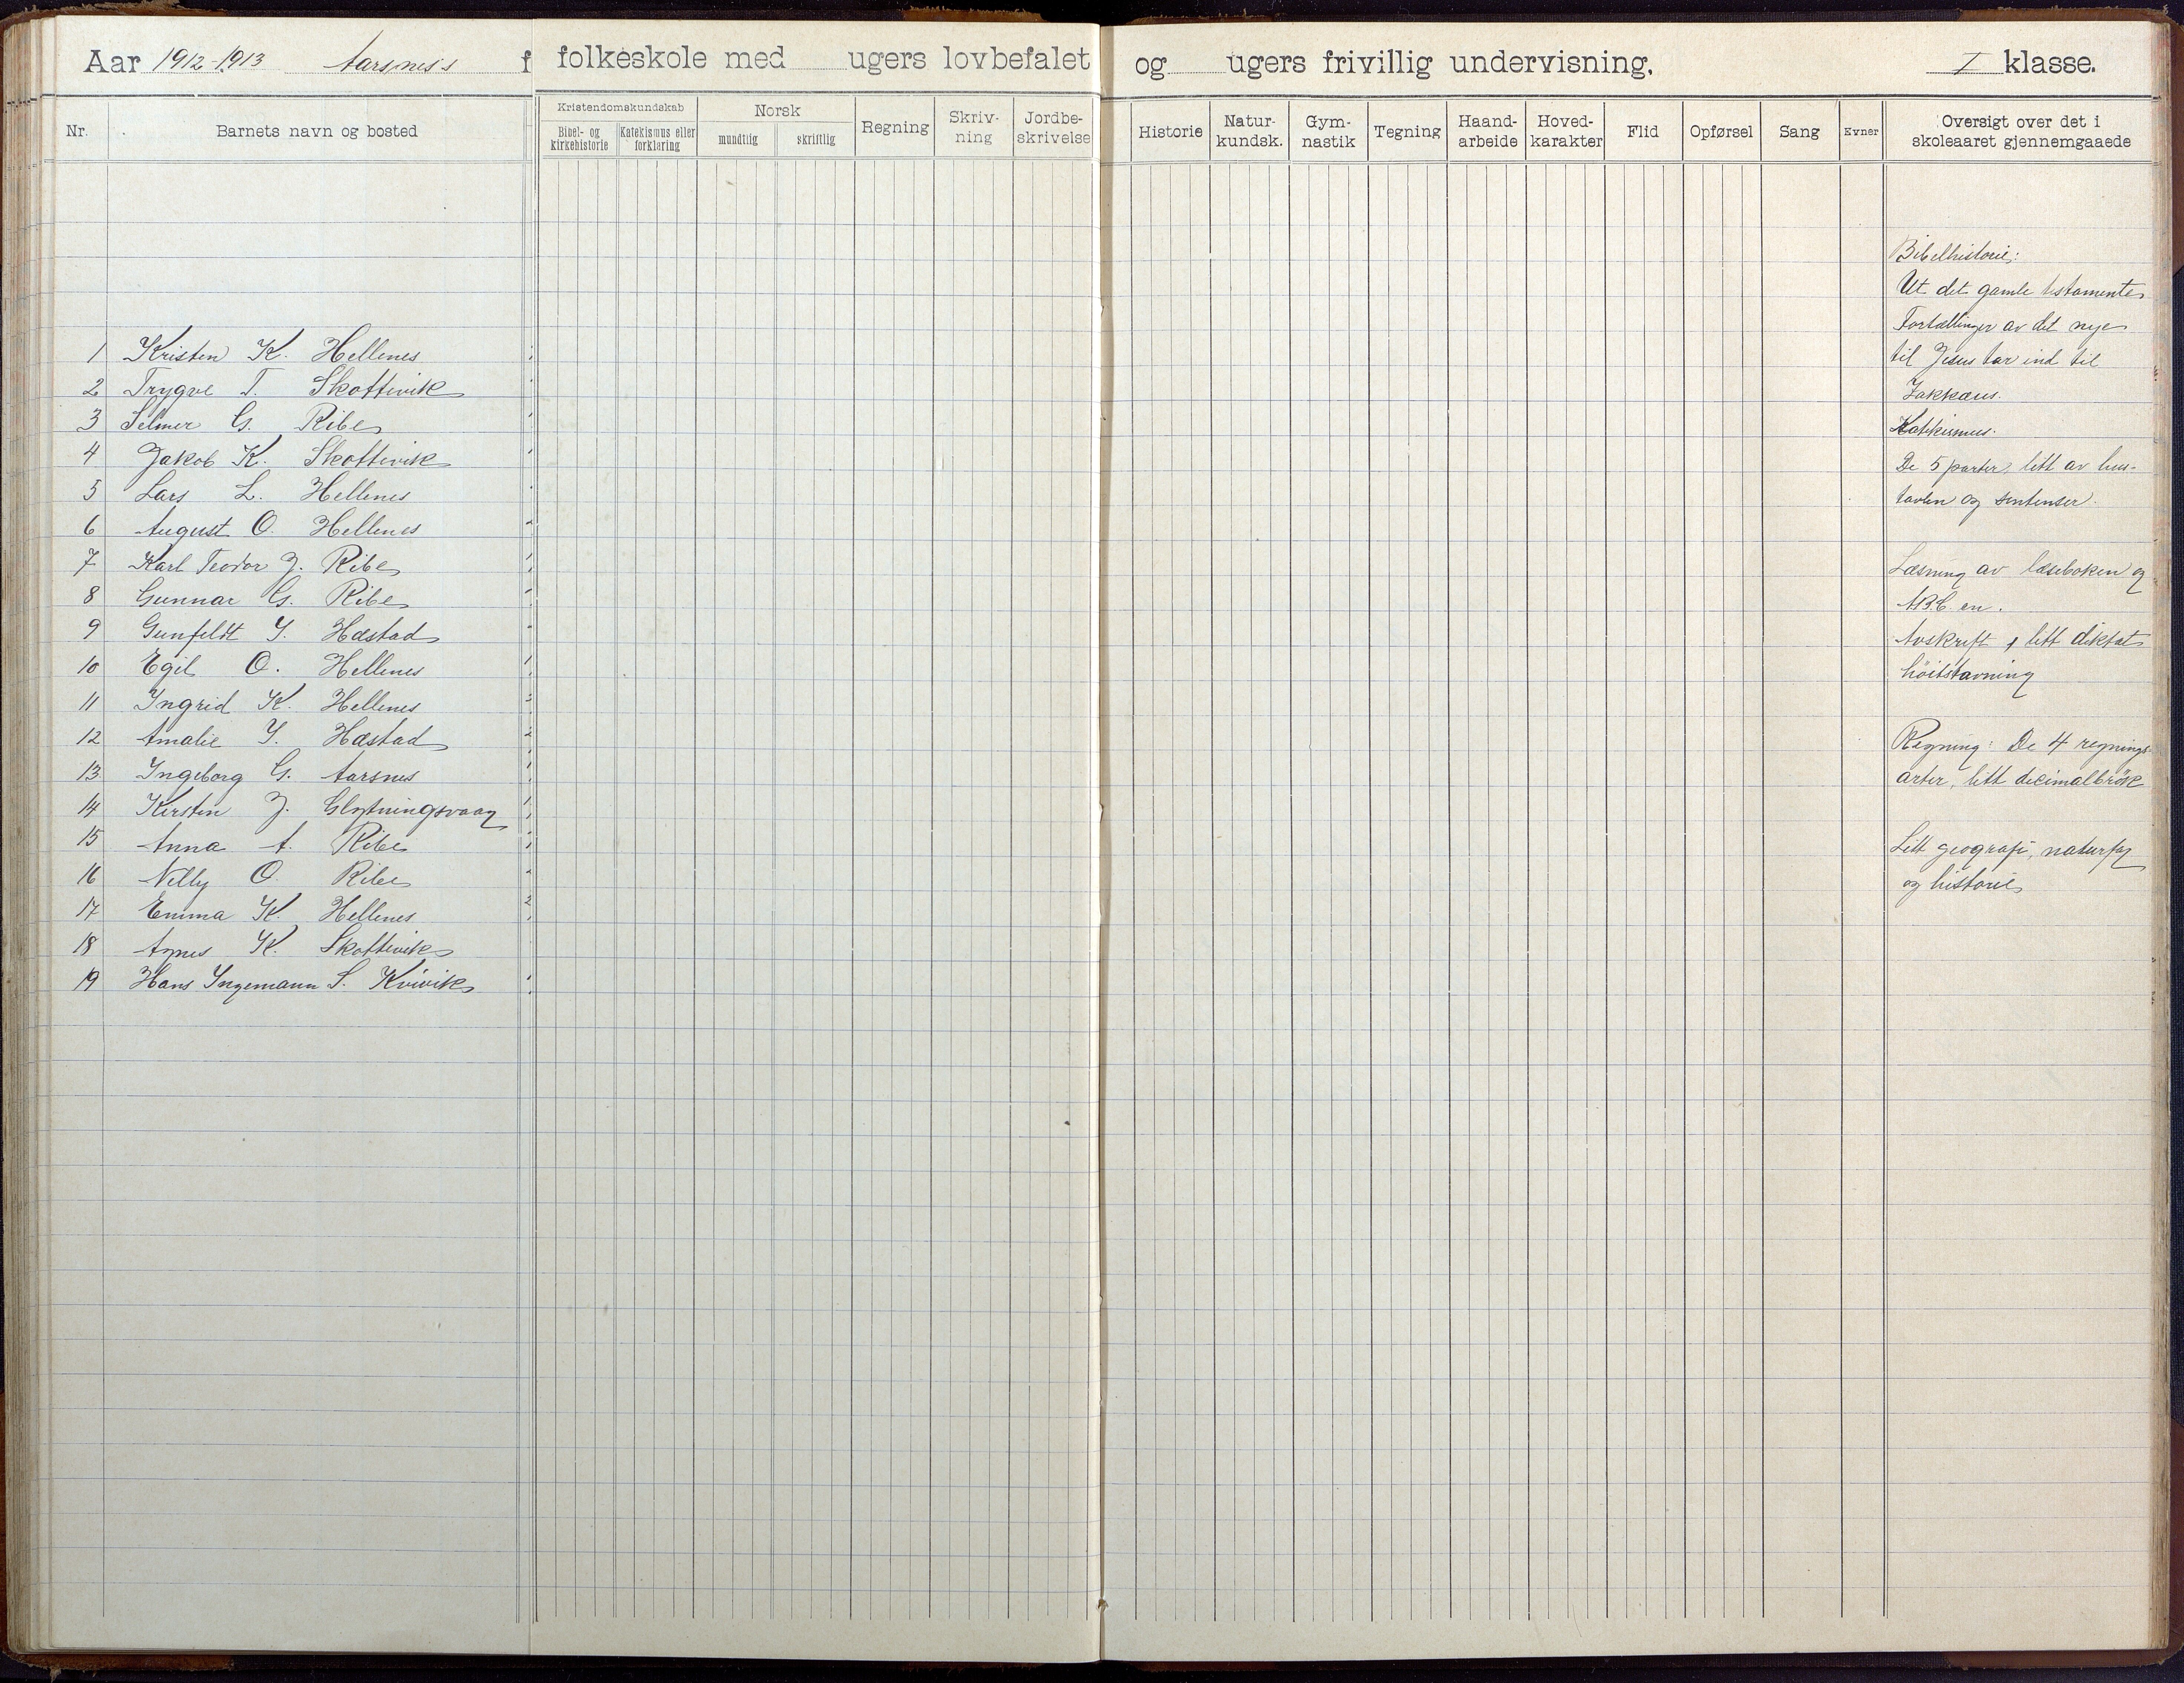 Aar 1912-1913 Aarsnes's f folkeskole med ugers lovbefalet og ugers frivillig undervisning. I klasse.
Nr. Barnets navn og bosted
Kristendomskundskab
Bibel- og kirkehistorie
Katekismus eller forklaring
Norsk
mundtlig
skriftlig
Regning
Skriv-
ning
Jordbe-
skrivelse
Historie
Natur-
kundsk.
Gym-
nastik
Tegning
Haand-
arbeide
Hoved-
karakter
Flid
Opførsel
Sang
Evner
Oversigt over det i
skoleaaret gjennemgaaede
1 Kristen K. Hellenes
2 Trygve T. Skottevik
3 Selmer G. Ribe
4 Jakob K. Skottevik
5 Lars L. Hellenes
6 August O. Hellenes
7 Karl Teodor J. Ribe
8 Gunnar G. Ribe
9 Gunfeldt Y. Hæstad
10 Egil O. Hellenes
11 Ingrid K. Hellenes
12 Amalie Y. Hæstad
13 Ingeborg G. Aarsnes
14 Kirsten J. Glytningsvaag
15 Anna A. Ribe
16 Nelly O. Ribe
17 Emma K. Hellenes
18 Agnes K. Skottevik
19 Hans Ingemann S. Kvivik
Bibelhistorie:
Ut det gamle testamente
Fortællinger av det nye
til Jesus tar ind til
Zakkæus.
Katekismus.
De 5 parter, litt av hus-
tavlen og sentenser.
Læsning av læseboken og
A.B.C. en.
Avskrift, litt diktat
höitstavning
Regning: De 4 regnings-
arter, litt decimalbrök
Litt geografi, naturfag
og historie